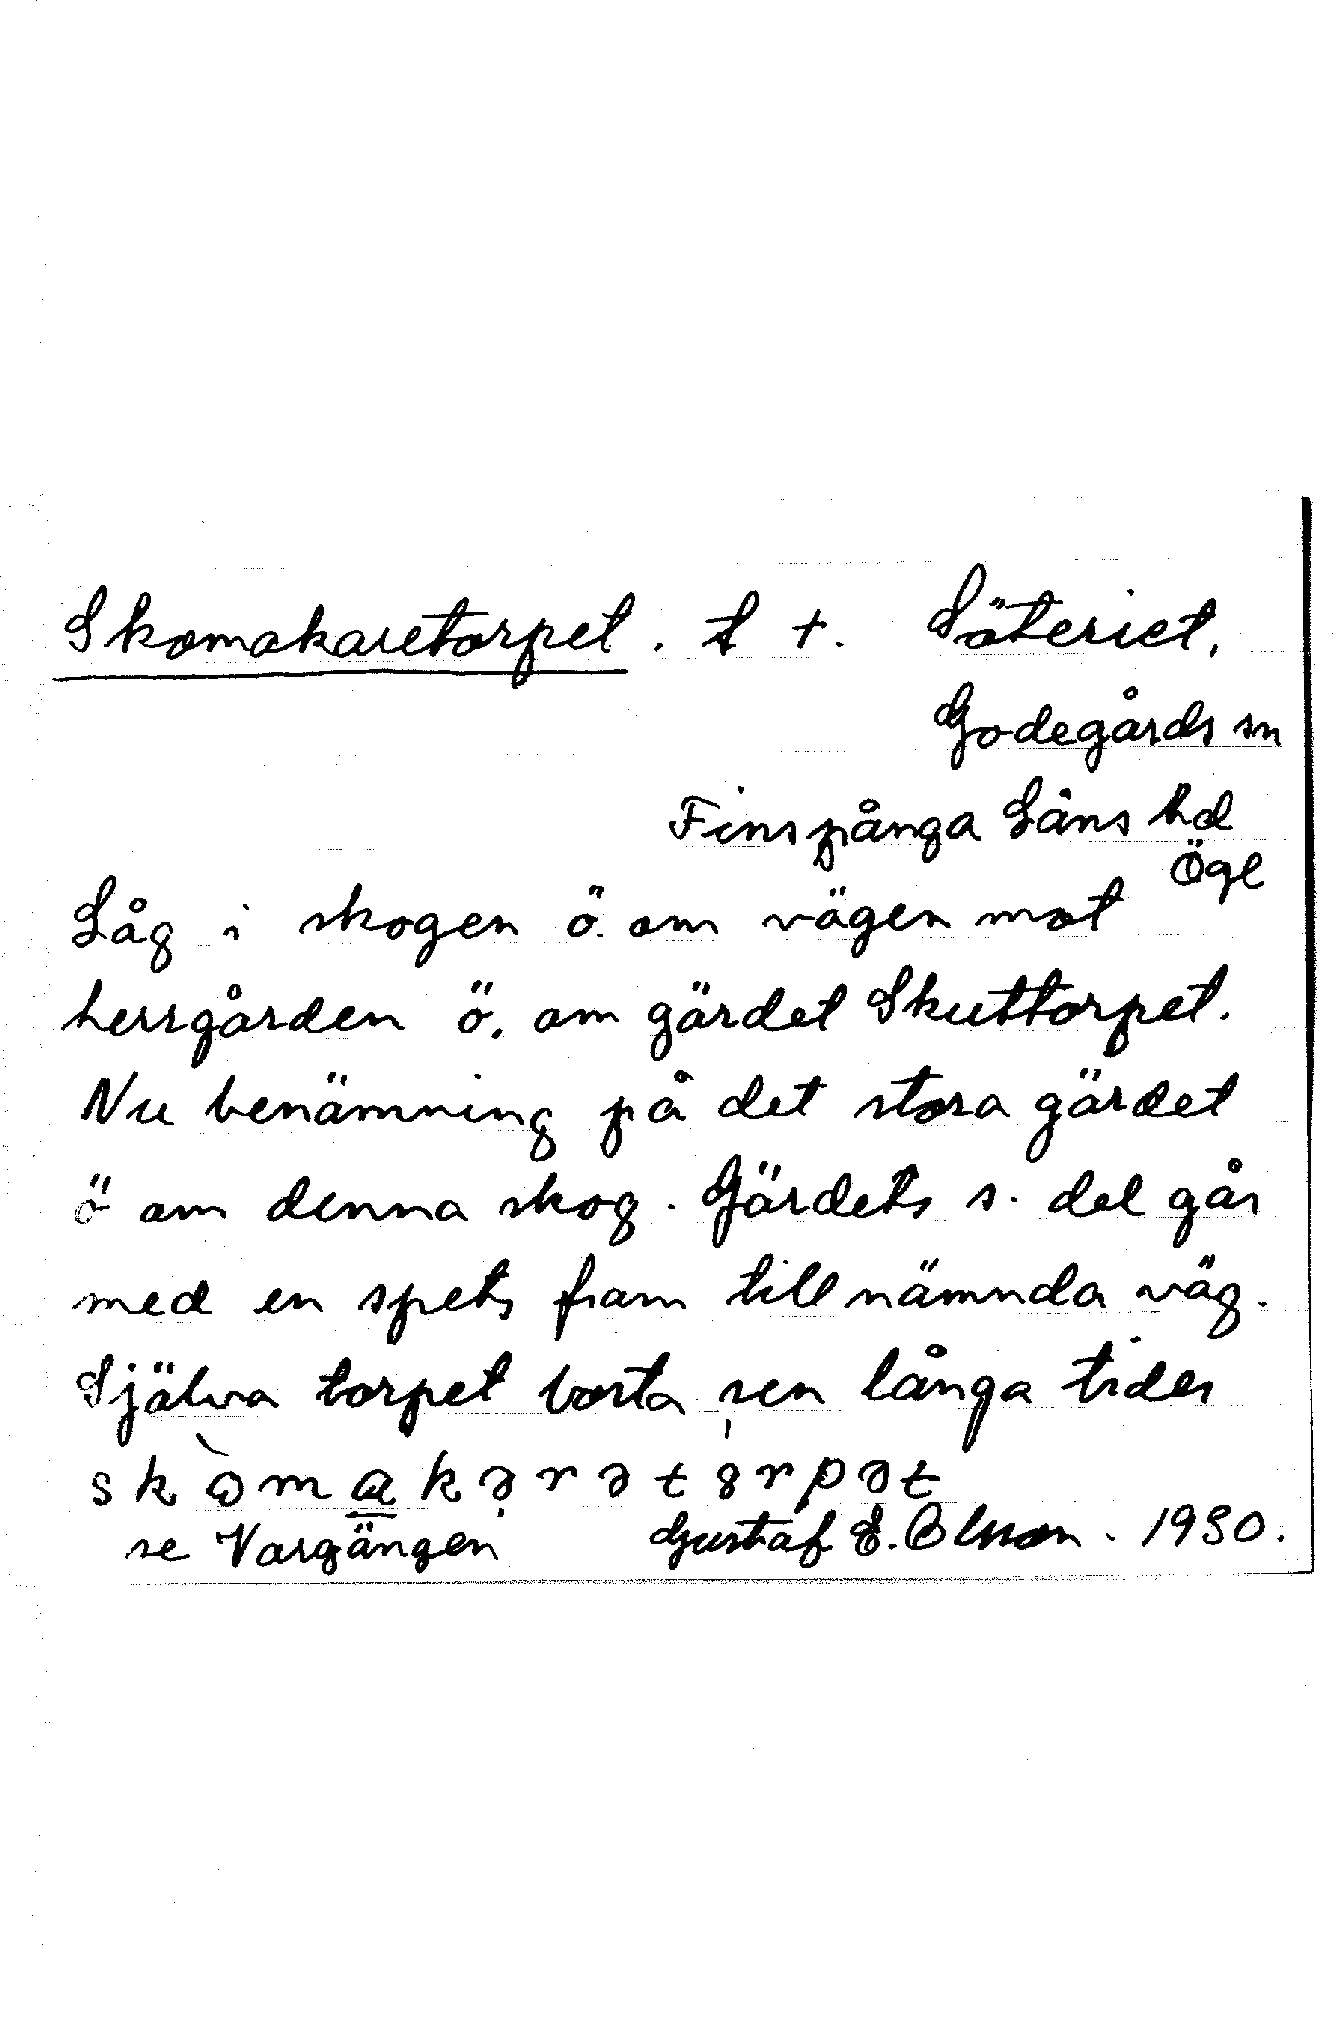 Skomakaretorpet. t +. Säteriet,
Godegårds sn
Finspånga Läns hd
Ögl
Låg i skogen ö. om vägen mot
herrgården ö. om gärdet Skuttorpet.
Nu benämning på det stora gärdet
ö om denna skog. Gärdets s. del går
med en spets fram till nämnda väg.
Själva torpet borta sen långa tider
se Vargängen Gustaf E. Olsson. 1930.